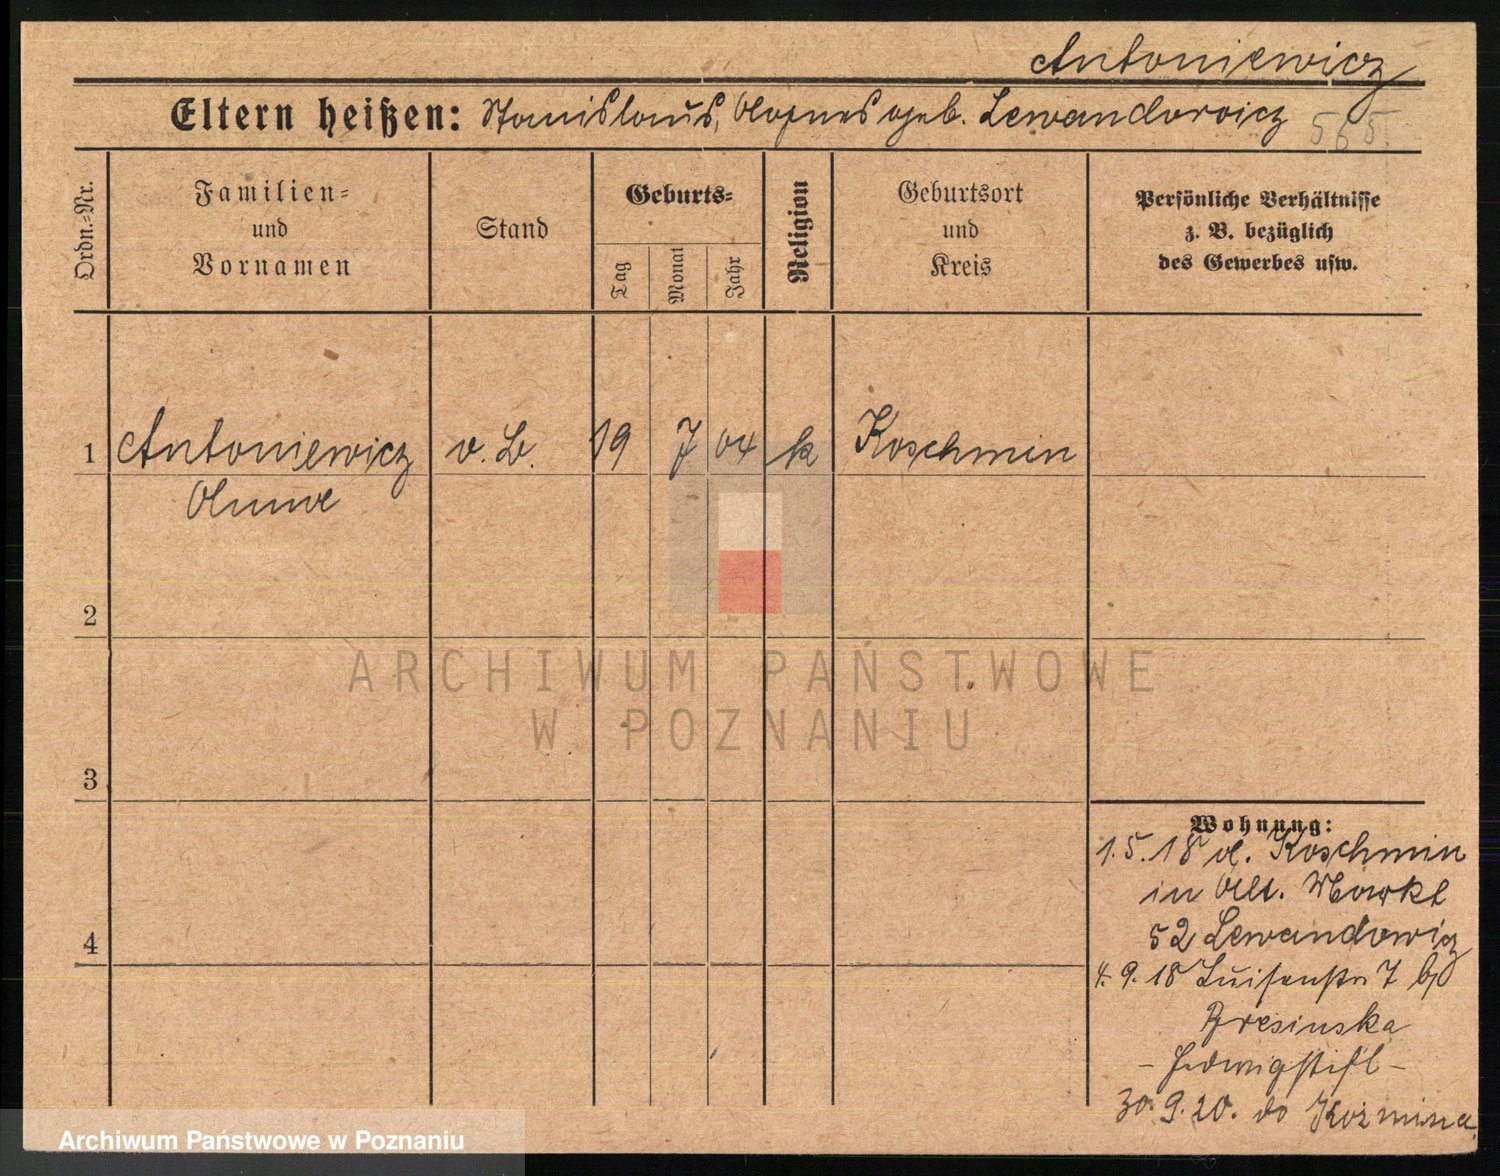 Antoniewicz
Eltern heißen: Stanislaus, Agnes geb. Lewandowicz 565.
Ordn.=Nr.
Familien=
und
Vornamen
Stand
Geburts=
Tag
Monat
Jahr
Religion
Geburtsort
und
Kreis
Persönliche Verhältnisse
z. B. bezüglich
des Gewerbes usw.
1 Antoniewicz 19 7 04 k Koschmin
2
ARCHIWUM PAŃSTWOWE
W POZNANIU
3
4
Wohnung:
1.5.18 v. Koschmin
in Alt. Markt
52 Lewandowicz
4.9.18 Luisenstr 7 b/
Bresinska
- Hedwigstift -
30.9.20. do Kozmina
Archiwum Państwowe w Poznaniu